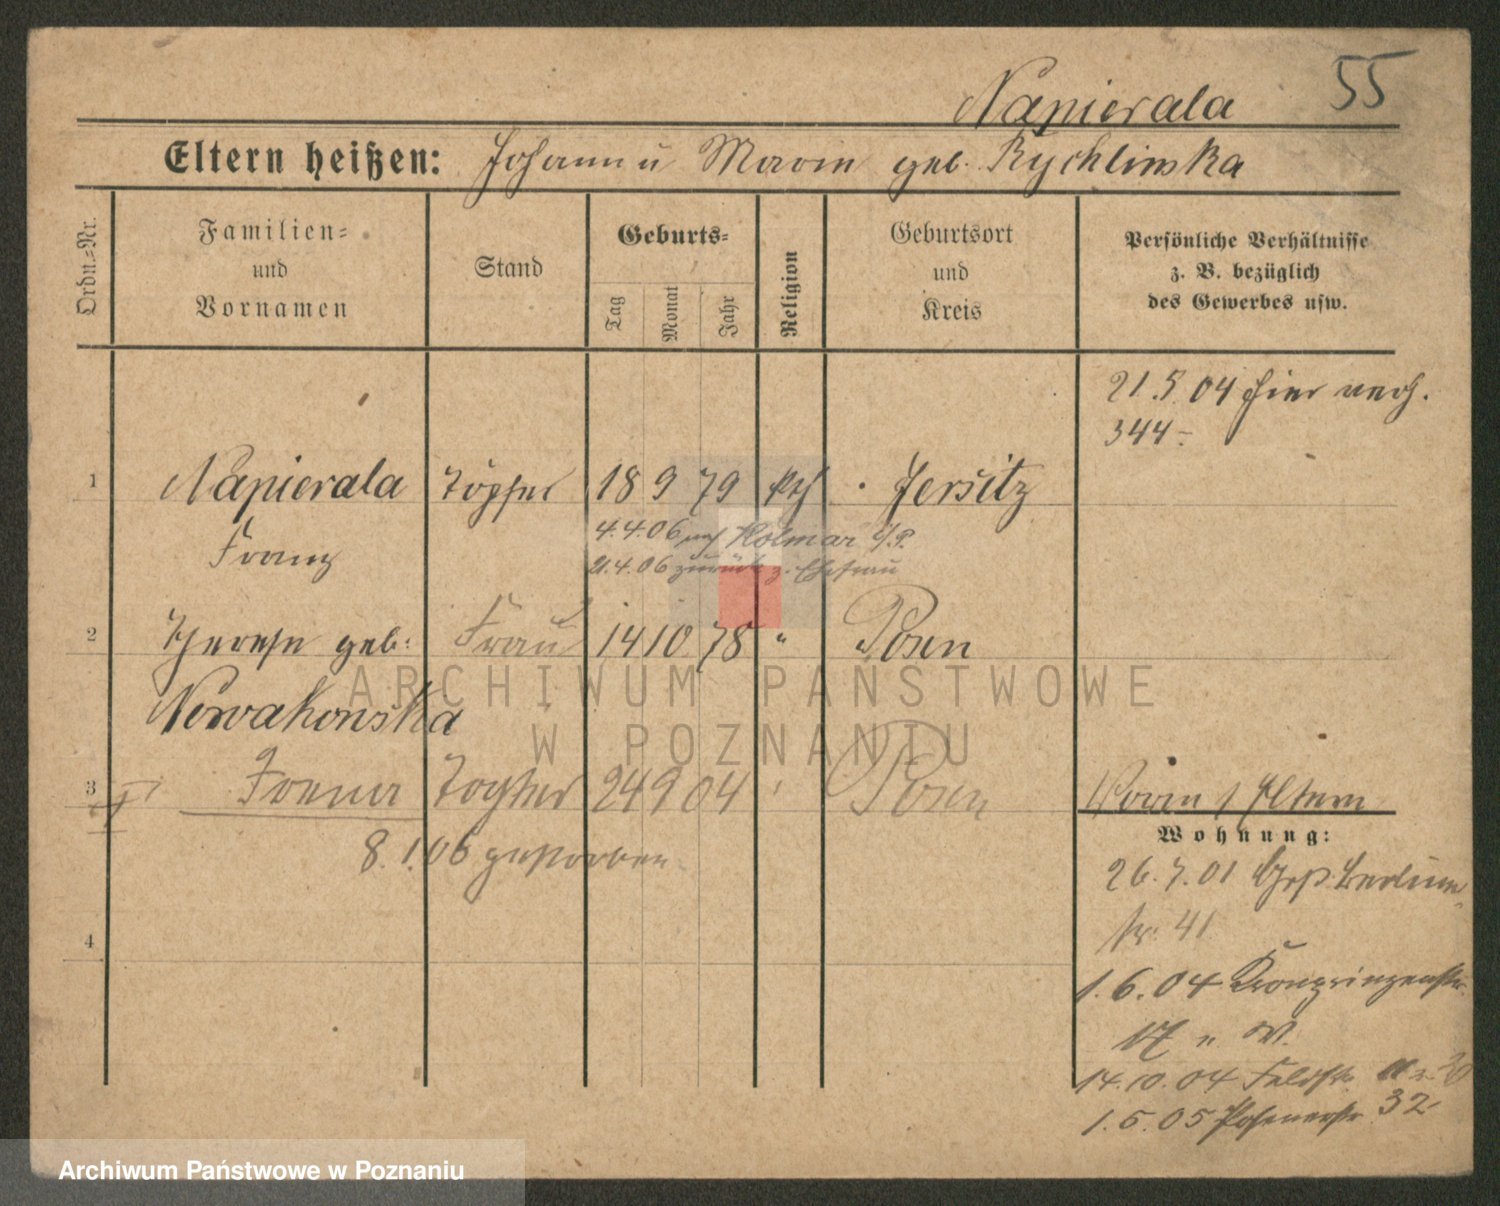 55
Napierala
Eltern heißen: Johann u Marie geb. Rychlinska
Ordn.=Nr.
Familien=
und
Vornamen
Stand
Geburts=
Tag
Monat
Jahr
Religion
Geburtsort
und
Kreis
Persönliche Verhältnisse
z. B. bezüglich
des Gewerbes usw.
21.5.04 hier verh.
344
1 Napierala Töpfer 18 9 79 kth Jersitz
Franz
4.4.06 nach Kolmar i/P.
21.4.06 zurück z. Ehefrau
2 Therese geb: Frau 14 10 78 " Posen
Nowakowska
3 Irena Tochter 24 9 04 Posen
8.1.06 gestorben
4
Wohnung:
26.7.01 Berliner
str. 41
1.6.04 Kronprinzenstr.
17
14.10.04 Feldstr.
1.5.05 Posenerstr. 32
ARCHIWUM PAŃSTWOWE
W POZNANIU
Archiwum Państwowe w Poznaniu